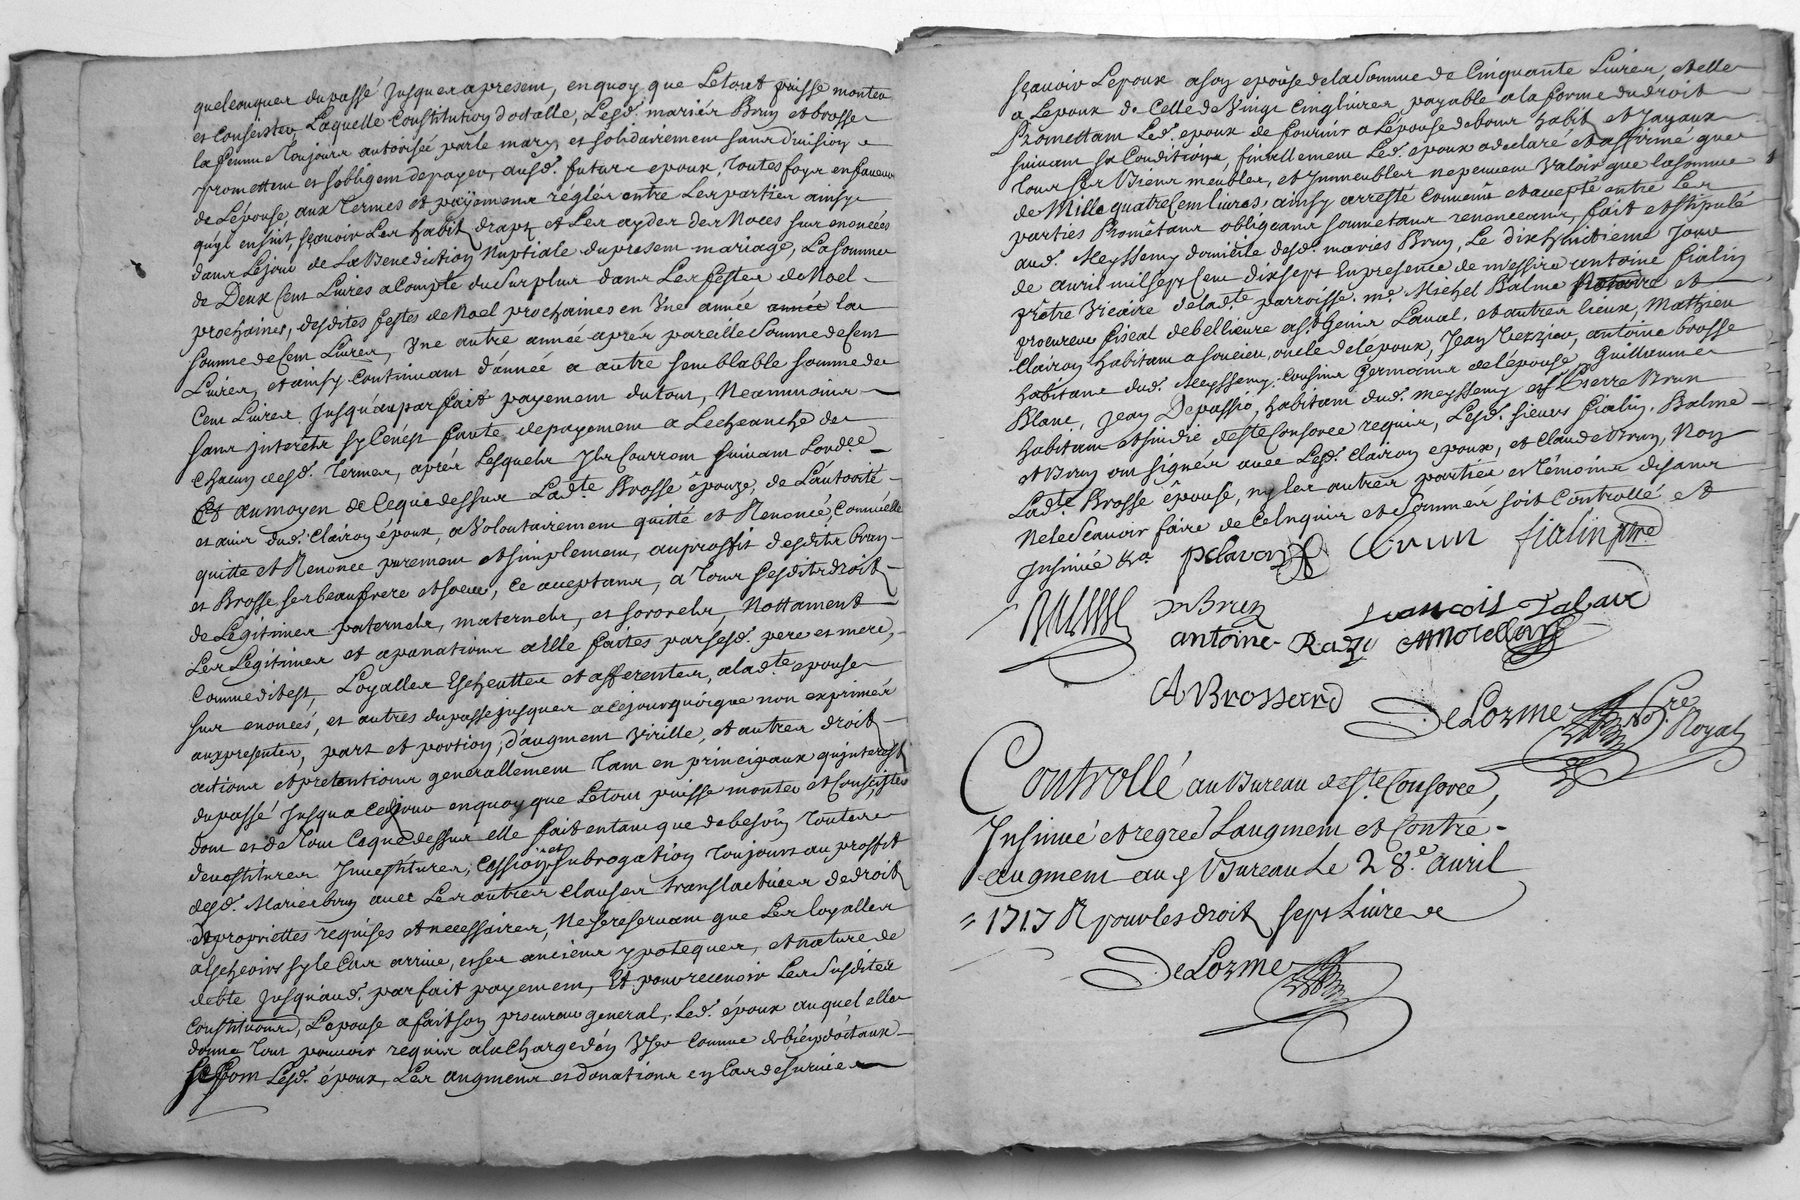 quelconques du passé jusques a present, en quoy que le tout puisse monter
et consister Laquelle constitution dotalle, Lesd. mariés Brun et brosse
la femme toujours autorisée par le mary et solidairement sans division
promettent et s'obligent de payer, ausd. futurs epoux, toutes foys en faveur
de L'épouse, aux termes et payemens réglés entre Les parties ainsy
qu'yl ensuit, sçavoir Les habit draps et Les ayder des Noces sus enoncées
dans Le jour de La Benediction Nuptiale du present mariage, La somme
de Deux Cent Livres a Compte du surplus dans Les festes de Noel
prochaines, desdites festes de Noel prochaines en Une année année la
somme de Cent Livres, Une autre année apres pareille somme de Cent
Livres, et ainsy continuant d'année a autre semblable somme de
Cent Livres jusqu'au parfait payement du tout, Neanmoins
sans Interets sy Cen'est faute de payement a L'echeance de
Chacun desd. termes, aprés Lesquels Ils Courront suivant Lordce
Et au moyen de Ce que dessus Ladte Brosse épouze, de L'autorité
et avis dud. Clairon époux, a Volontairement quitté et Renoncé, comme elle
quitte et Renonce purement et simplement, au proffit desdits brun
et Brosse ses beaufrere et soeur, Ce acceptans, a Tous sesdits droit
de Legitimes paternels, maternels, et sororels, Nottament
Les Legitimes et apanations a Elle faites par sesd. pere et mere,
Comme dit est, Loyalles Escheuttes et afferentes, a ladte epouse
sus enoncés, et autres du passé jusques a ce jour quoique non exprimés
aux presentes, part et portion, d'augment Virille, et autres droit
actions et pretentions generallement Tant en principaux qu'interest
du passé jusqu a Ce jour en quoy que Le tout puisse monter et Consister
dont et de Tout Ce que dessus elle fait entant que de besoin Toutes
devestitures Investitures, Cession et subrogation Toujours au proffit
desd. Mariés brun avec Les autres clauses translatives de droit
et propriettes requises et necessaires, Ne se reservant que Les loyalles
Escheoirs sy le Cas arrive, et ses anciens ypoteques, et nature de
debte jusqu'aud. parfait payement, Et pour recevoir Les susdites
Constitutions, L'epouse a fait son procureur general, Led. époux auquel elle
donne Tout pouvoir requis a la Charge d'en User comme de biens dotaux
se font Lesd. époux, Les augmens et donations en Cas de survie
sçavoir L'epoux a son epouse de la somme de Cinquante Livres, et elle
a L'epoux de Celle de Vingt Cinq livres, payable a la forme du droit
Promettant Led. epoux de fournir a L'epouse de bons habit et Joyaux
suivant sa Condition, finallement Led. époux a declaré et affirmé que
Tous ses Biens meubles, et Immeubles ne peuvent Valoir que la somme
de Mille quatre Cent livres, ainsy arresté convenu et accepté entre Les
parties Promettans obligeans soumettans renonceans, fait et stipulé
aud. Meyssemy domicile desd. mariés Brun, Le dix huitieme Jour
de avril mil sept Cent dix sept En presence de messire antoine fialin
prêtre Vicaire de ladte parroisse, me Michel Balme Notaire et
procureur fiscal de bellieure a St Genis Laval, et autres lieux, Mathieu
Clairon habitant a soucieu, oncle de l'epoux, Jean Terzier, antoine brosse
habitans dud. Meyssemy, Cousins Germains de l'épouse, Guillaume
Blanc, Jean Depassio, habitant dud. meyssemy et Sr Pierre Brun
habitant et sindic de Ste Consorce requis, Lesd. sieurs fialin, Balme
et Brun ont signés avec Lesd. Clairon epoux, et Claude Brun, Non
Ladte Brosse épouse, ny les autres parties et témoins disans
Ne le Scavoir faire de Ce Enquis et sommés soit controllé et
Insinué &ra pclaron CBrun fialin ptre
Balme PBrun francois Dalaux
antoine Razy AMorellon
ABrossard
DeLorme Nore Royal
Controllé au Bureau de Ste Consorce,
Insinué et regré L'augment et Contre-
augment aud Bureau Le 28e avril
1717 R pour les droit sept Livres
DeLorme